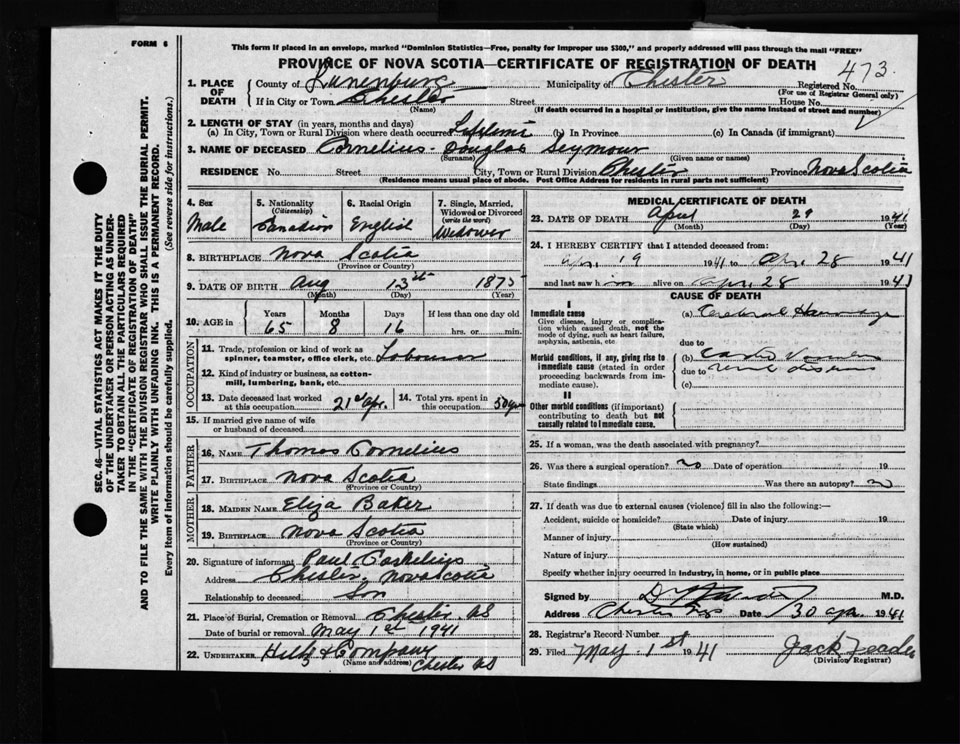 FORM 6
This form if placed in an envelope, marked "Dominion Statistics—Free, penalty for improper use $300," and properly addressed will pass through the mail "FREE"
PROVINCE OF NOVA SCOTIA—CERTIFICATE OF REGISTRATION OF DEATH
473
1. PLACE OF DEATH
County of Lunenburg Municipality of Chester Registered No.
(For use of Registrar General only)
If in City or Town Chester Street House No.
(Name) (If death occurred in a hospital or institution, give the name instead of street and number)
2. LENGTH OF STAY (in years, months and days)
(a) In City, Town or Rural Division where death occurred Lifetime (b) In Province (c) In Canada (if immigrant)
3. NAME OF DECEASED Cornelius Douglas Seymour
(Surname) (Given name or names)
RESIDENCE No. Street City, Town or Rural Division Chester Province Nova Scotia
(Residence means usual place of abode. Post Office Address for residents in rural parts not sufficient)
4. Sex 5. Nationality (Citizenship) 6. Racial Origin 7. Single, Married, Widowed or Divorced (write the word)
Male Canadian English Widower
8. BIRTHPLACE Nova Scotia
(Province or Country)
9. DATE OF BIRTH Aug 13th 1875
(Month) (Day) (Year)
10. AGE in Years Months Days If less than one day old
65 8 16 hrs. or min.
OCCUPATION
11. Trade, profession or kind of work as spinner, teamster, office clerk, etc. Labourer
12. Kind of industry or business, as cotton-mill, lumbering, bank, etc.
13. Date deceased last worked at this occupation 21st Apr. 14. Total yrs. spent in this occupation 50 yrs
15. If married give name of wife or husband of deceased
FATHER
16. NAME Thomas Cornelius
17. BIRTHPLACE Nova Scotia
(Province or Country)
MOTHER
18. MAIDEN NAME Eliza Baker
19. BIRTHPLACE Nova Scotia
(Province or Country)
20. Signature of informant Paul Cornelius
Address Chester, Nova Scotia
Relationship to deceased Son
21. Place of Burial, Cremation or Removal Chester NS
Date of burial or removal May 1st 1941
22. UNDERTAKER & Company
(Name and address) Chester NS
MEDICAL CERTIFICATE OF DEATH
23. DATE OF DEATH April 29 1941
(Month) (Day) (Year)
24. I HEREBY CERTIFY that I attended deceased from:
Apr. 19 1941 to Apr. 28 1941
and last saw him alive on Apr. 28 1941
CAUSE OF DEATH
I
Immediate cause
Give disease, injury or complication which caused death, not the mode of dying, such as heart failure, asphyxia, asthenia, etc
(a) Cerebral
due to
Morbid conditions, if any, giving rise to immediate cause (stated in order proceeding backwards from immediate cause).
(b) Cardio
due to renal disease
(c)
II
Other morbid conditions (if important) contributing to death but not causally related to immediate cause.
25. If a woman, was the death associated with pregnancy?
26. Was there a surgical operation? no Date of operation 19
State findings Was there an autopsy? no
27. If death was due to external causes (violence) fill in also the following:—
Accident, suicide or homicide? Date of injury 19
(State which)
Manner of injury
(How sustained)
Nature of injury
Specify whether injury occurred in industry, in home, or in public place
Signed by M.D.
Address Chester Date 30 Apr 1941
28. Registrar's Record Number
29. Filed May 1st 1941 Jack
(Division Registrar)
SEC. 46—VITAL STATISTICS ACT MAKES IT THE DUTY
OF THE UNDERTAKER OR PERSON ACTING AS UNDER-
TAKER TO OBTAIN ALL THE PARTICULARS REQUIRED
IN THE "CERTIFICATE OF REGISTRATION OF DEATH"
AND TO FILE THE SAME WITH THE DIVISION REGISTRAR WHO SHALL ISSUE THE BURIAL PERMIT.
WRITE PLAINLY WITH UNFADING INK. THIS IS A PERMANENT RECORD.
Every item of information should be carefully supplied. (See reverse side for instructions.)